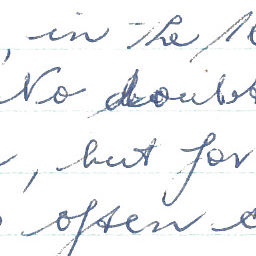 , in the
No doubt
, but for
often